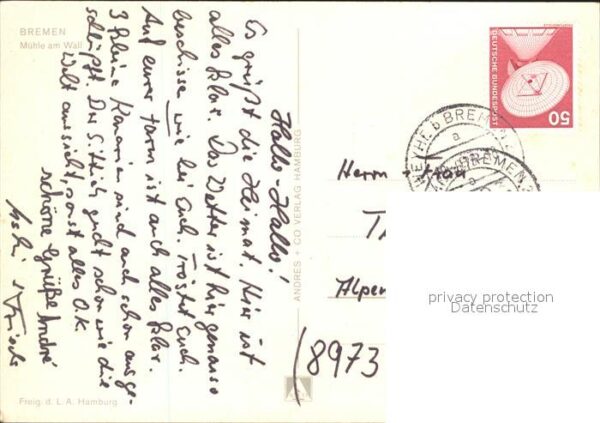 BREMEN
Mühle am Wall
Hallo-Hallo!
Es grüßt die Heimat. Hier ist
alles klar. Das Wetter ist hier genauso
beschissen wie bei Euch. Tröstet Euch.
Auf eurer Farm ist auch alles klar.
3 kleine Kanarien sind auch schon ausge-
schlüpft. Der Sittich guckt schon wie die
Welt aussieht, sonst alles O.K.
schöne Grüße André
Freig. d. L. A. Hamburg
ANDRES + CO VERLAG HAMBURG
DEUTSCHE BUNDESPOST
50
BREMEN
BREMEN 2
Herrn + Frau
T
Alpen
(8973
privacy protection
Datenschutz